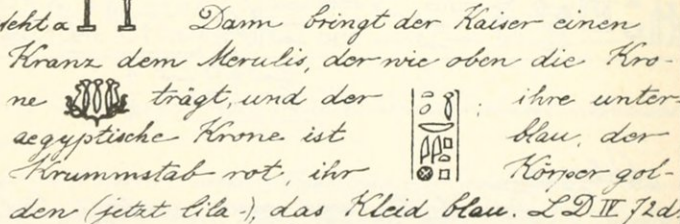 steht a Dann bringt der Kaiser einen
Kranz dem Merulis, der wie oben die Kro-
ne trägt, und der : ihre unter-
aegyptische Krone ist blau, der
Krummstab rot, ihr Körper gol-
den (jetzt lila-), das Kleid blau. LD IV 72d